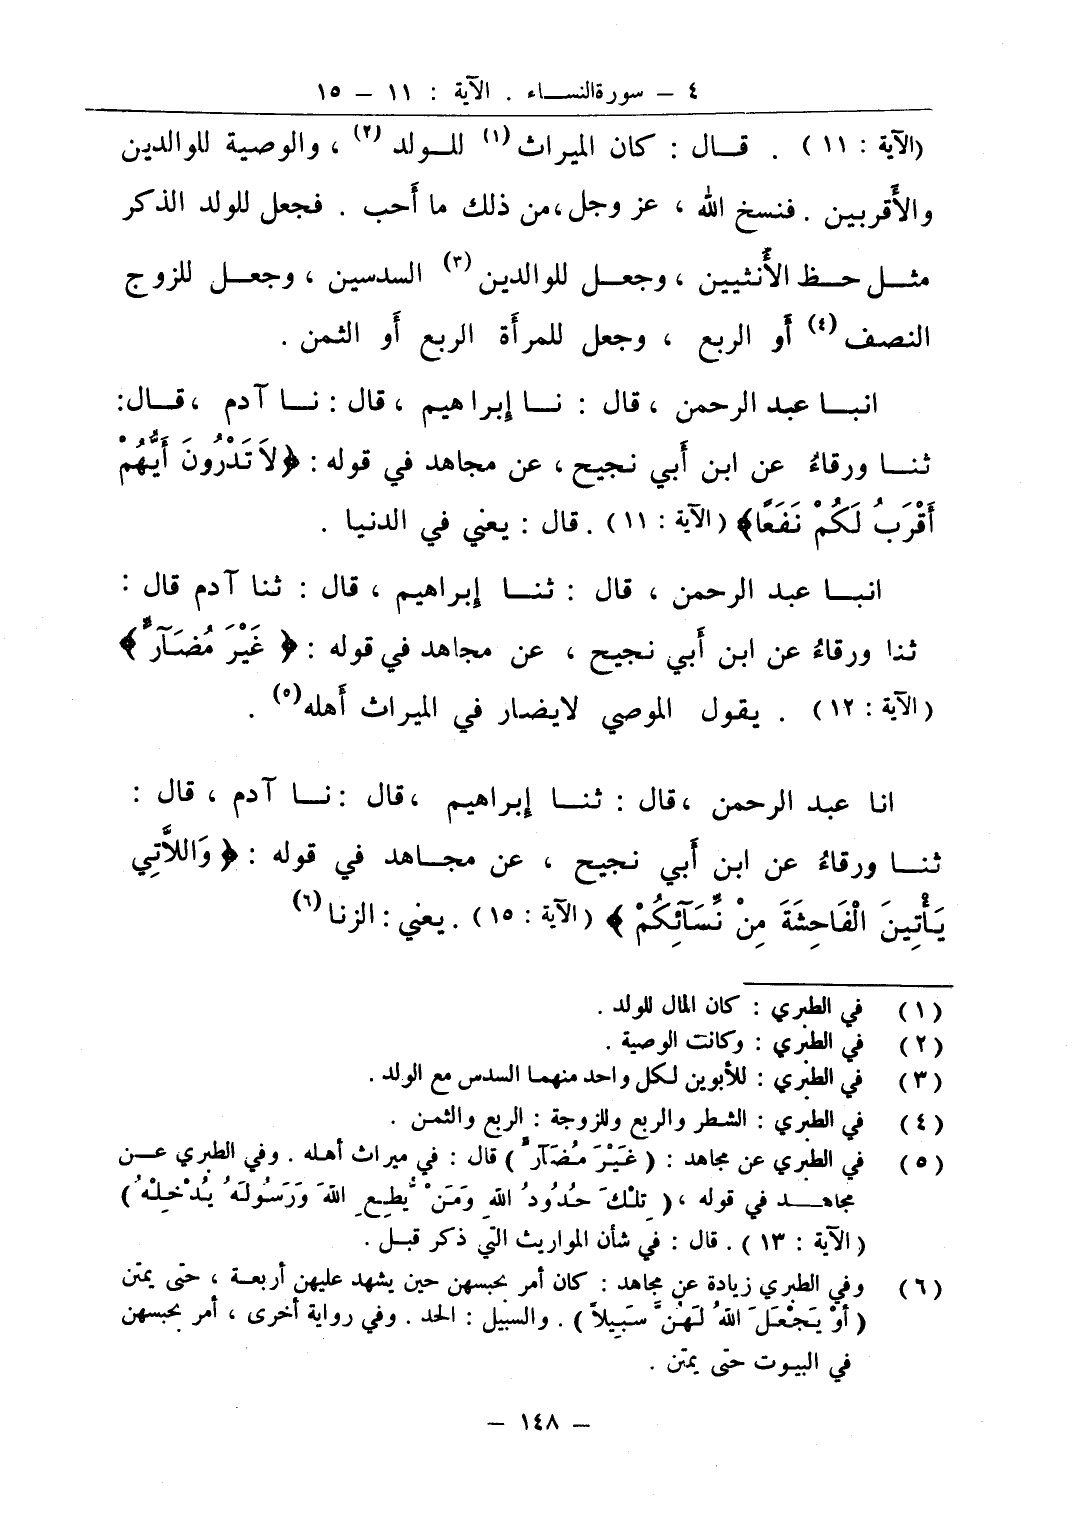 ٤ – سورة النساء . الآية : ١١ – ١٥
(الآية : ١١) . قال : كان الميراث (١) للولد (٢) ، والوصية للوالدين
والأقربين . فنسخ الله ، عز وجل ، من ذلك ما أحب . فجعل للولد الذكر
مثل حظ الأُنثيين ، وجعل للوالدين (٣) السدسين ، وجعل للزوج
النصف (٤) أو الربع ، وجعل للمرأة الربع أو الثمن .
انبا عبد الرحمن ، قال : نا إبراهيم ، قال : نا آدم ، قال :
ثنا ورقاءُ عن ابن أبي نجيح ، عن مجاهد في قوله : ﴿لاَ تَدْرُونَ أَيُّهُمْ
أَقْرَبُ لَكُمْ نَفَعًا﴾ (الآية : ١١) . قال : يعني في الدنيا .
انبا عبد الرحمن ، قال : ثنا إبراهيم ، قال : ثنا آدم قال :
ثنا ورقاءُ عن ابن أبي نجيح ، عن مجاهد في قوله : ﴿ غَيْرَ مُضَآرٍّ ﴾
(الآية : ١٢) . يقول الموصي لايضار في الميراث أهله (٥) .
انا عبد الرحمن ، قال : ثنا إبراهيم ، قال : نا آدم ، قال :
ثنا ورقاءُ عن ابن أبي نجيح ، عن مجاهد في قوله : ﴿ وَاللاَّتِي
يَأْتِينَ الْفَاحِشَةَ مِنْ نِّسَآئِكُمْ ﴾ (الآية : ١٥) . يعني : الزنا (٦)
(١) في الطبري : كان المال للولد .
(٢) في الطبري : وكانت الوصية .
(٣) في الطبري : للأبوين لكل واحد منهما السدس مع الولد .
(٤) في الطبري : الشطر والربع وللزوجة : الربع والثمن .
(٥) في الطبري عن مجاهد : (غَيْرَ مُضَآرٍّ) قال : في ميراث أهله . وفي الطبري عن
مجاهد في قوله ، ( تِلْكَ حُدُودُ اللّهِ وَمَنْ يُّطِعِ اللّهَ وَرَسُولَهُ يُدْخِلْهُ )
(الآية : ١٣) . قال : في شأن المواريث التي ذكر قبل .
(٦) وفي الطبري زيادة عن مجاهد : كان أمر بحبسهن حين يشهد عليهن أربعة ، حتى يمتن
( أَوْ يَجْعَلَ اللّهُ لَهُنَّ سَبِيلاً ) . والسبيل : الحد . وفي رواية أخرى ، أمر بحبسهن
في البيوت حتى يمتن .
– ١٤٨ –